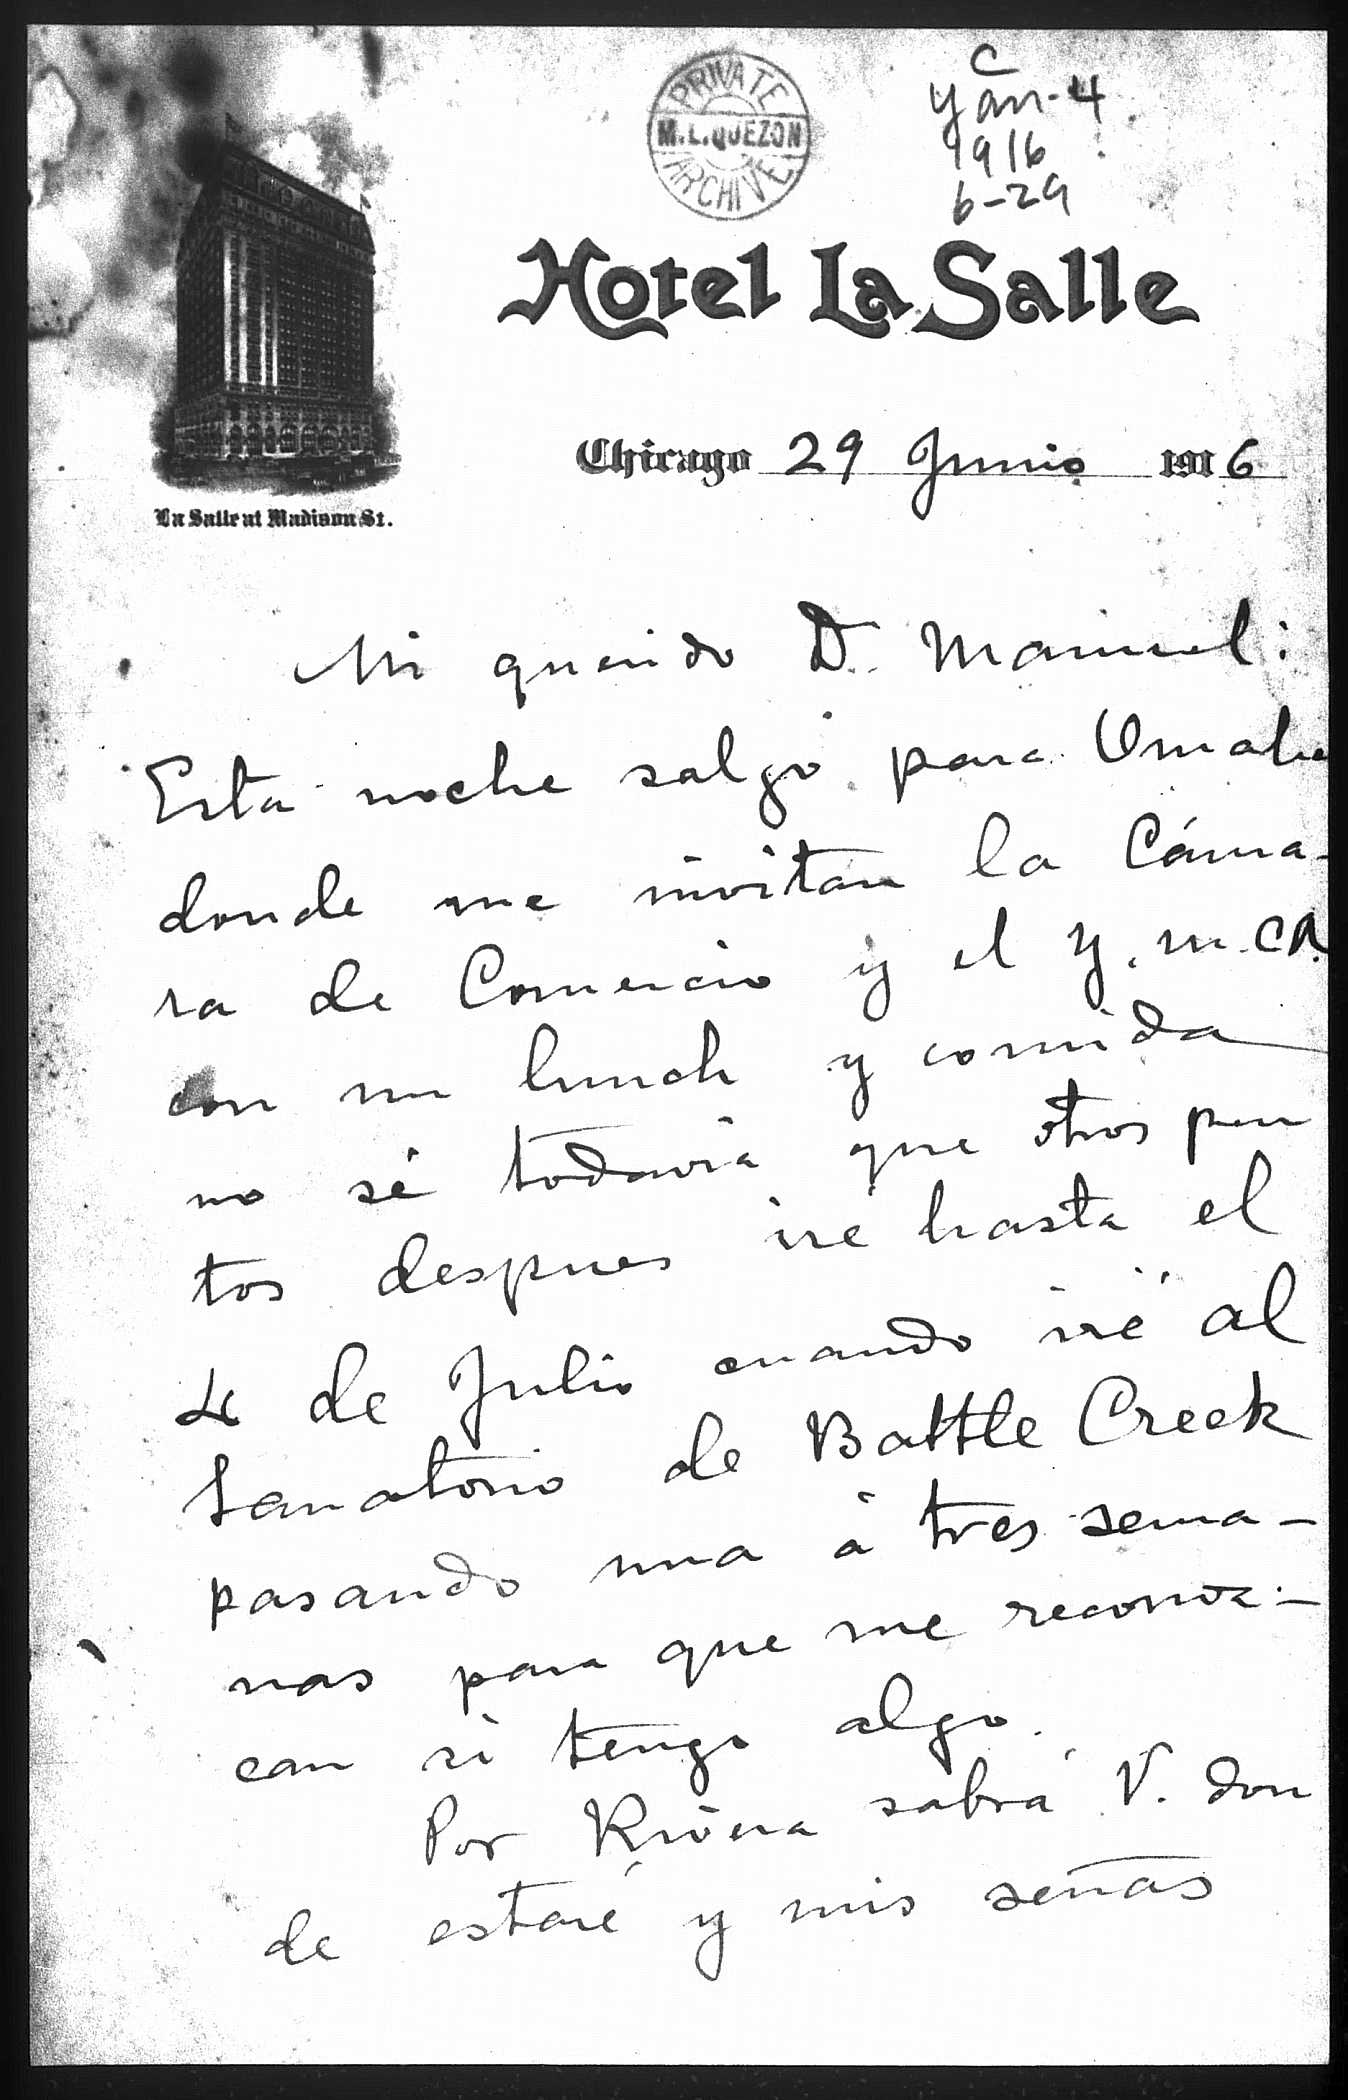 PRIVATE
M.L. QUEZON
ARCHIVE
C
Yan-4
1916
6-29
Hotel La Salle
La Salle at Madison St.
Chicago 29 Junio 1916
Mi querido D. Manuel:
Esta noche salgo para Omaha
donde me invitan la Cáma-
ra de Comercio y el Y.M.C.A.
con un lunch y comida
no sé todavia que otros pun
tos despues iré hasta el
4 de Julio cuando iré al
Sanatorio de Battle Creek
pasando una á tres sema-
nas para que me reconoz-
can si tengo algo.
Por Rivera sabrá V. don
de estaré y mis señas